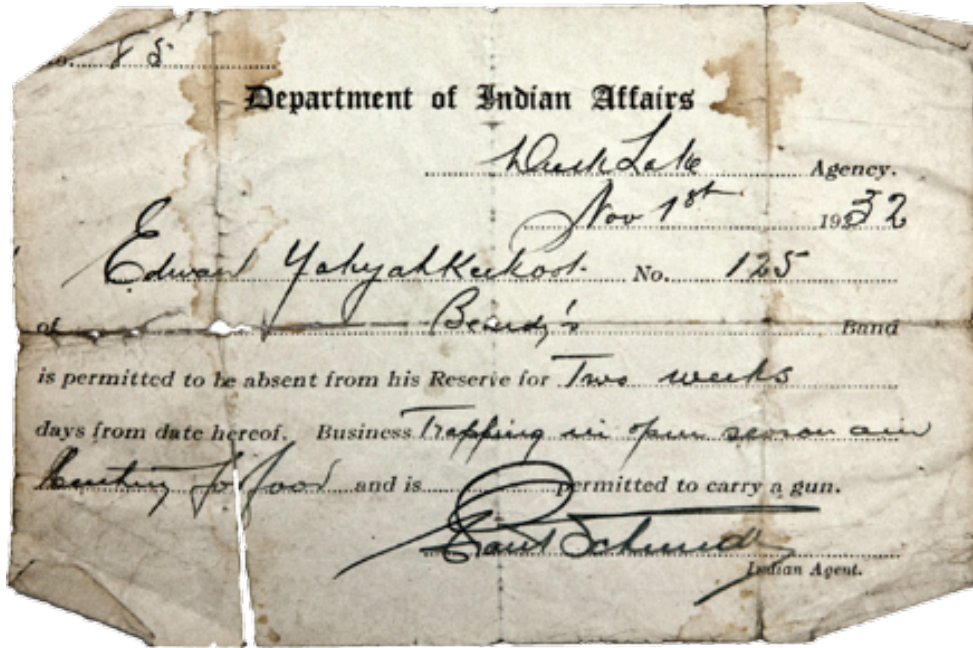 No. 85
Department of Indian Affairs
Duck Lake Agency.
Nov 1st 1932
Edward Yahyahkeekoot. No. 125
of Beardy's Band
is permitted to be absent from his Reserve for Two weeks
days from date hereof. Business Trapping in open season and
hunting for food and is permitted to carry a gun.
Paul Schmidt
Indian Agent.